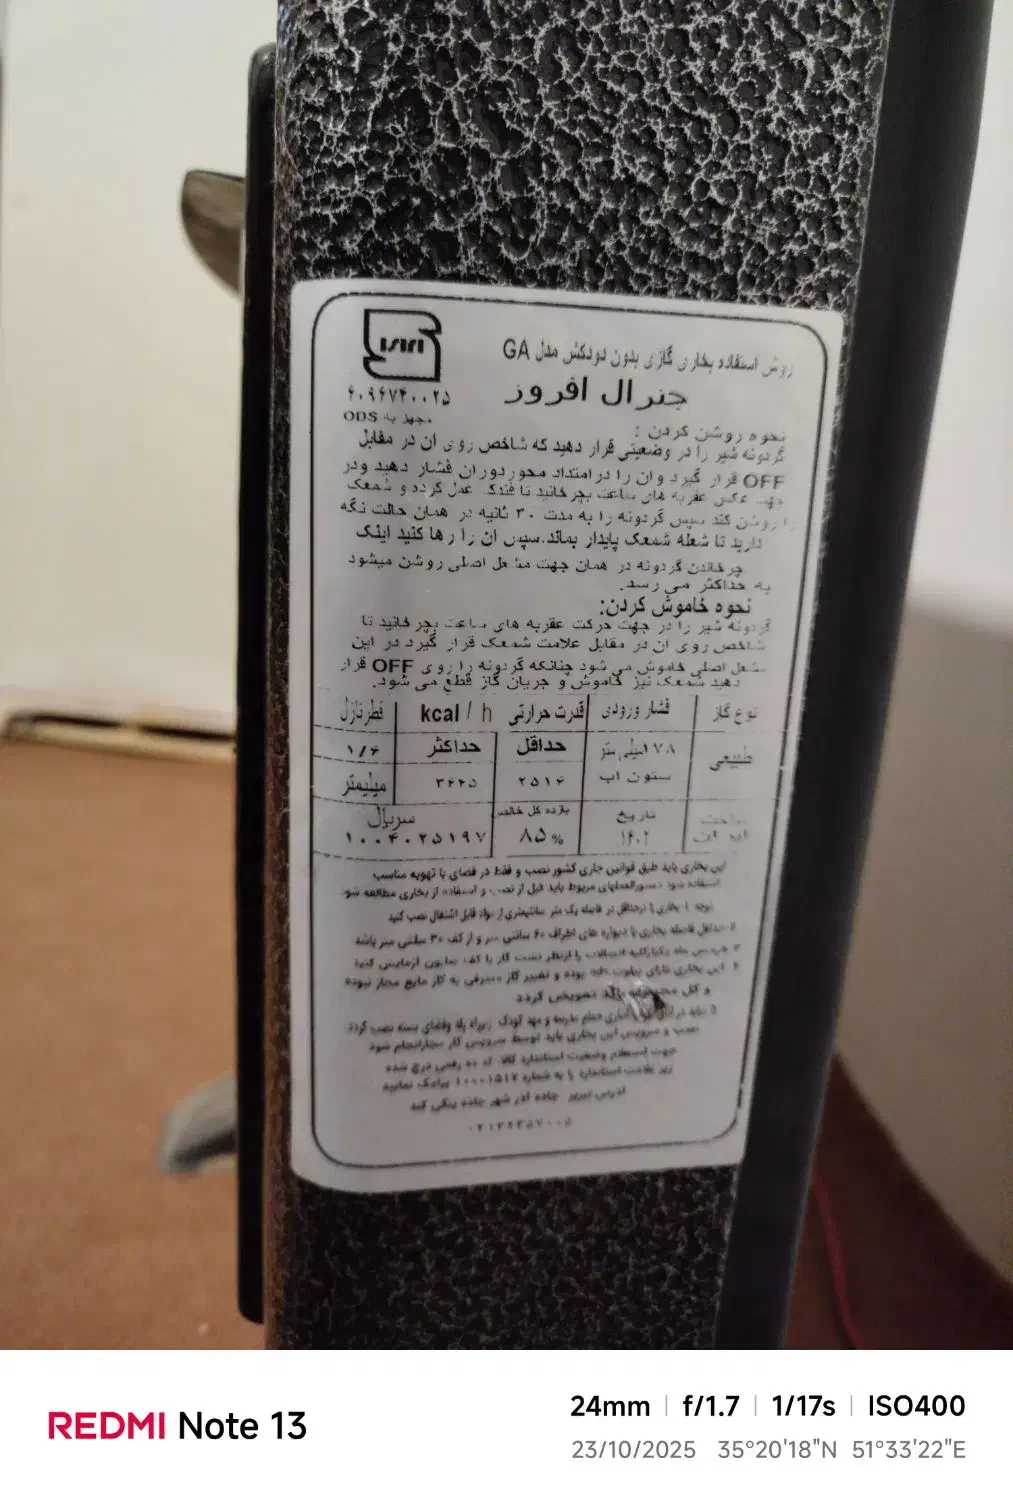 ISIRI
روش استفاده بخاری گازی بدون دودکش مدل GA
جنرال افروز
۶۰۹۶۷۴۰۰۲۵
مجهز به ODS
نحوه روشن کردن :
گردونه شیر را در وضعیتی قرار دهید که شاخص روی ان در مقابل
OFF قرار گیرد وان را درامتداد محوردوران فشار دهید ودر
جهت عکس عقربه های ساعت بچرخانید تا فندک عمل کرده و شمعک
را روشن کند سپس گردونه را به مدت ۳۰ ثانیه در همان حالت نگه
دارید تا شعله شمعک پایدار بماند.سپس ان را رها کنید اینک
چرخاندن گردونه در همان جهت مشعل اصلی روشن میشود
به حداکثر می رسد.
نحوه خاموش کردن:
گردونه شیر را در جهت حرکت عقربه های ساعت بچرخانید تا
شاخص روی ان در مقابل علامت شمعک قرار گیرد در این
مشعل اصلی خاموش می شود چنانکه گردونه را روی OFF قرار
دهید شمعک نیز خاموش و جریان گاز قطع می شود.
نوع گاز فشار ورودی قدرت حرارتی kcal / h قطر نازل
طبیعی ۱۷۸میلی متر حداقل حداکثر ۱/۶
ستون اب ۲۵۱۶ ۳۴۴۵ میلیمتر
ساخت تاریخ بازده کل خالص سریال
ایران ۱۴۰۲ ۸۵% ۱۰۰۴۰۲۵۱۹۷
این بخاری باید طبق قوانین جاری کشور نصب و فقط در فضای با تهویه مناسب
استفاده شود دستورالعملهای مربوط باید قبل از نصب و استفاده از بخاری مطالعه شود
توجه ۱ بخاری را درحداقل در فاصله یک متر سانتیمتری از مواد قابل اشتعال نصب کنید
۲ حداقل فاصله بخاری با دیواره های اطراف ۶۰ سانتی متر و از کف ۳۰ سانتی متر باشد
۳ هرسی ماه یکبارکلیه اتصالات را ازنظر نشت گاز با کف صابون آزمایش کنید
۴ این بخاری دارای پیلوت ods بوده و تغییر گاز مصرفی به گاز مایع مجاز نبوده
و کل مجموعه باید تعویض گردد
۵ نباید در انباری حمام مدرسه و مهد کودک زیرراه پله وفضای بسته نصب گردد
نصب و سرویس این بخاری باید توسط سرویس کار مجازانجام شود
جهت استعلام وضعیت استاندارد کالا، کد ده رقمی درج شده
زیر علامت استاندارد را به شماره ۱۰۰۰۱۵۱۷ پیامک نمایید
آدرس تبریز جاده آذر شهر جاده
REDMI Note 13
24mm | f/1.7 | 1/17s | ISO400
23/10/2025 35°20'18"N 51°33'22"E